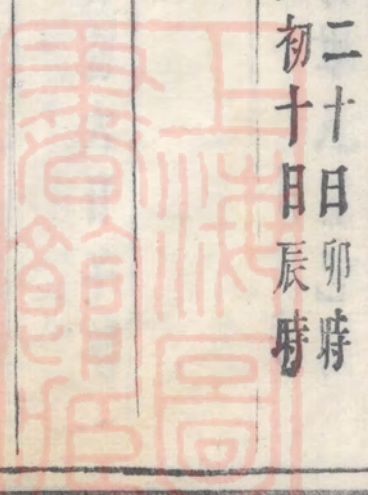 二十日卯時
初十日辰時
上海圖
書館藏